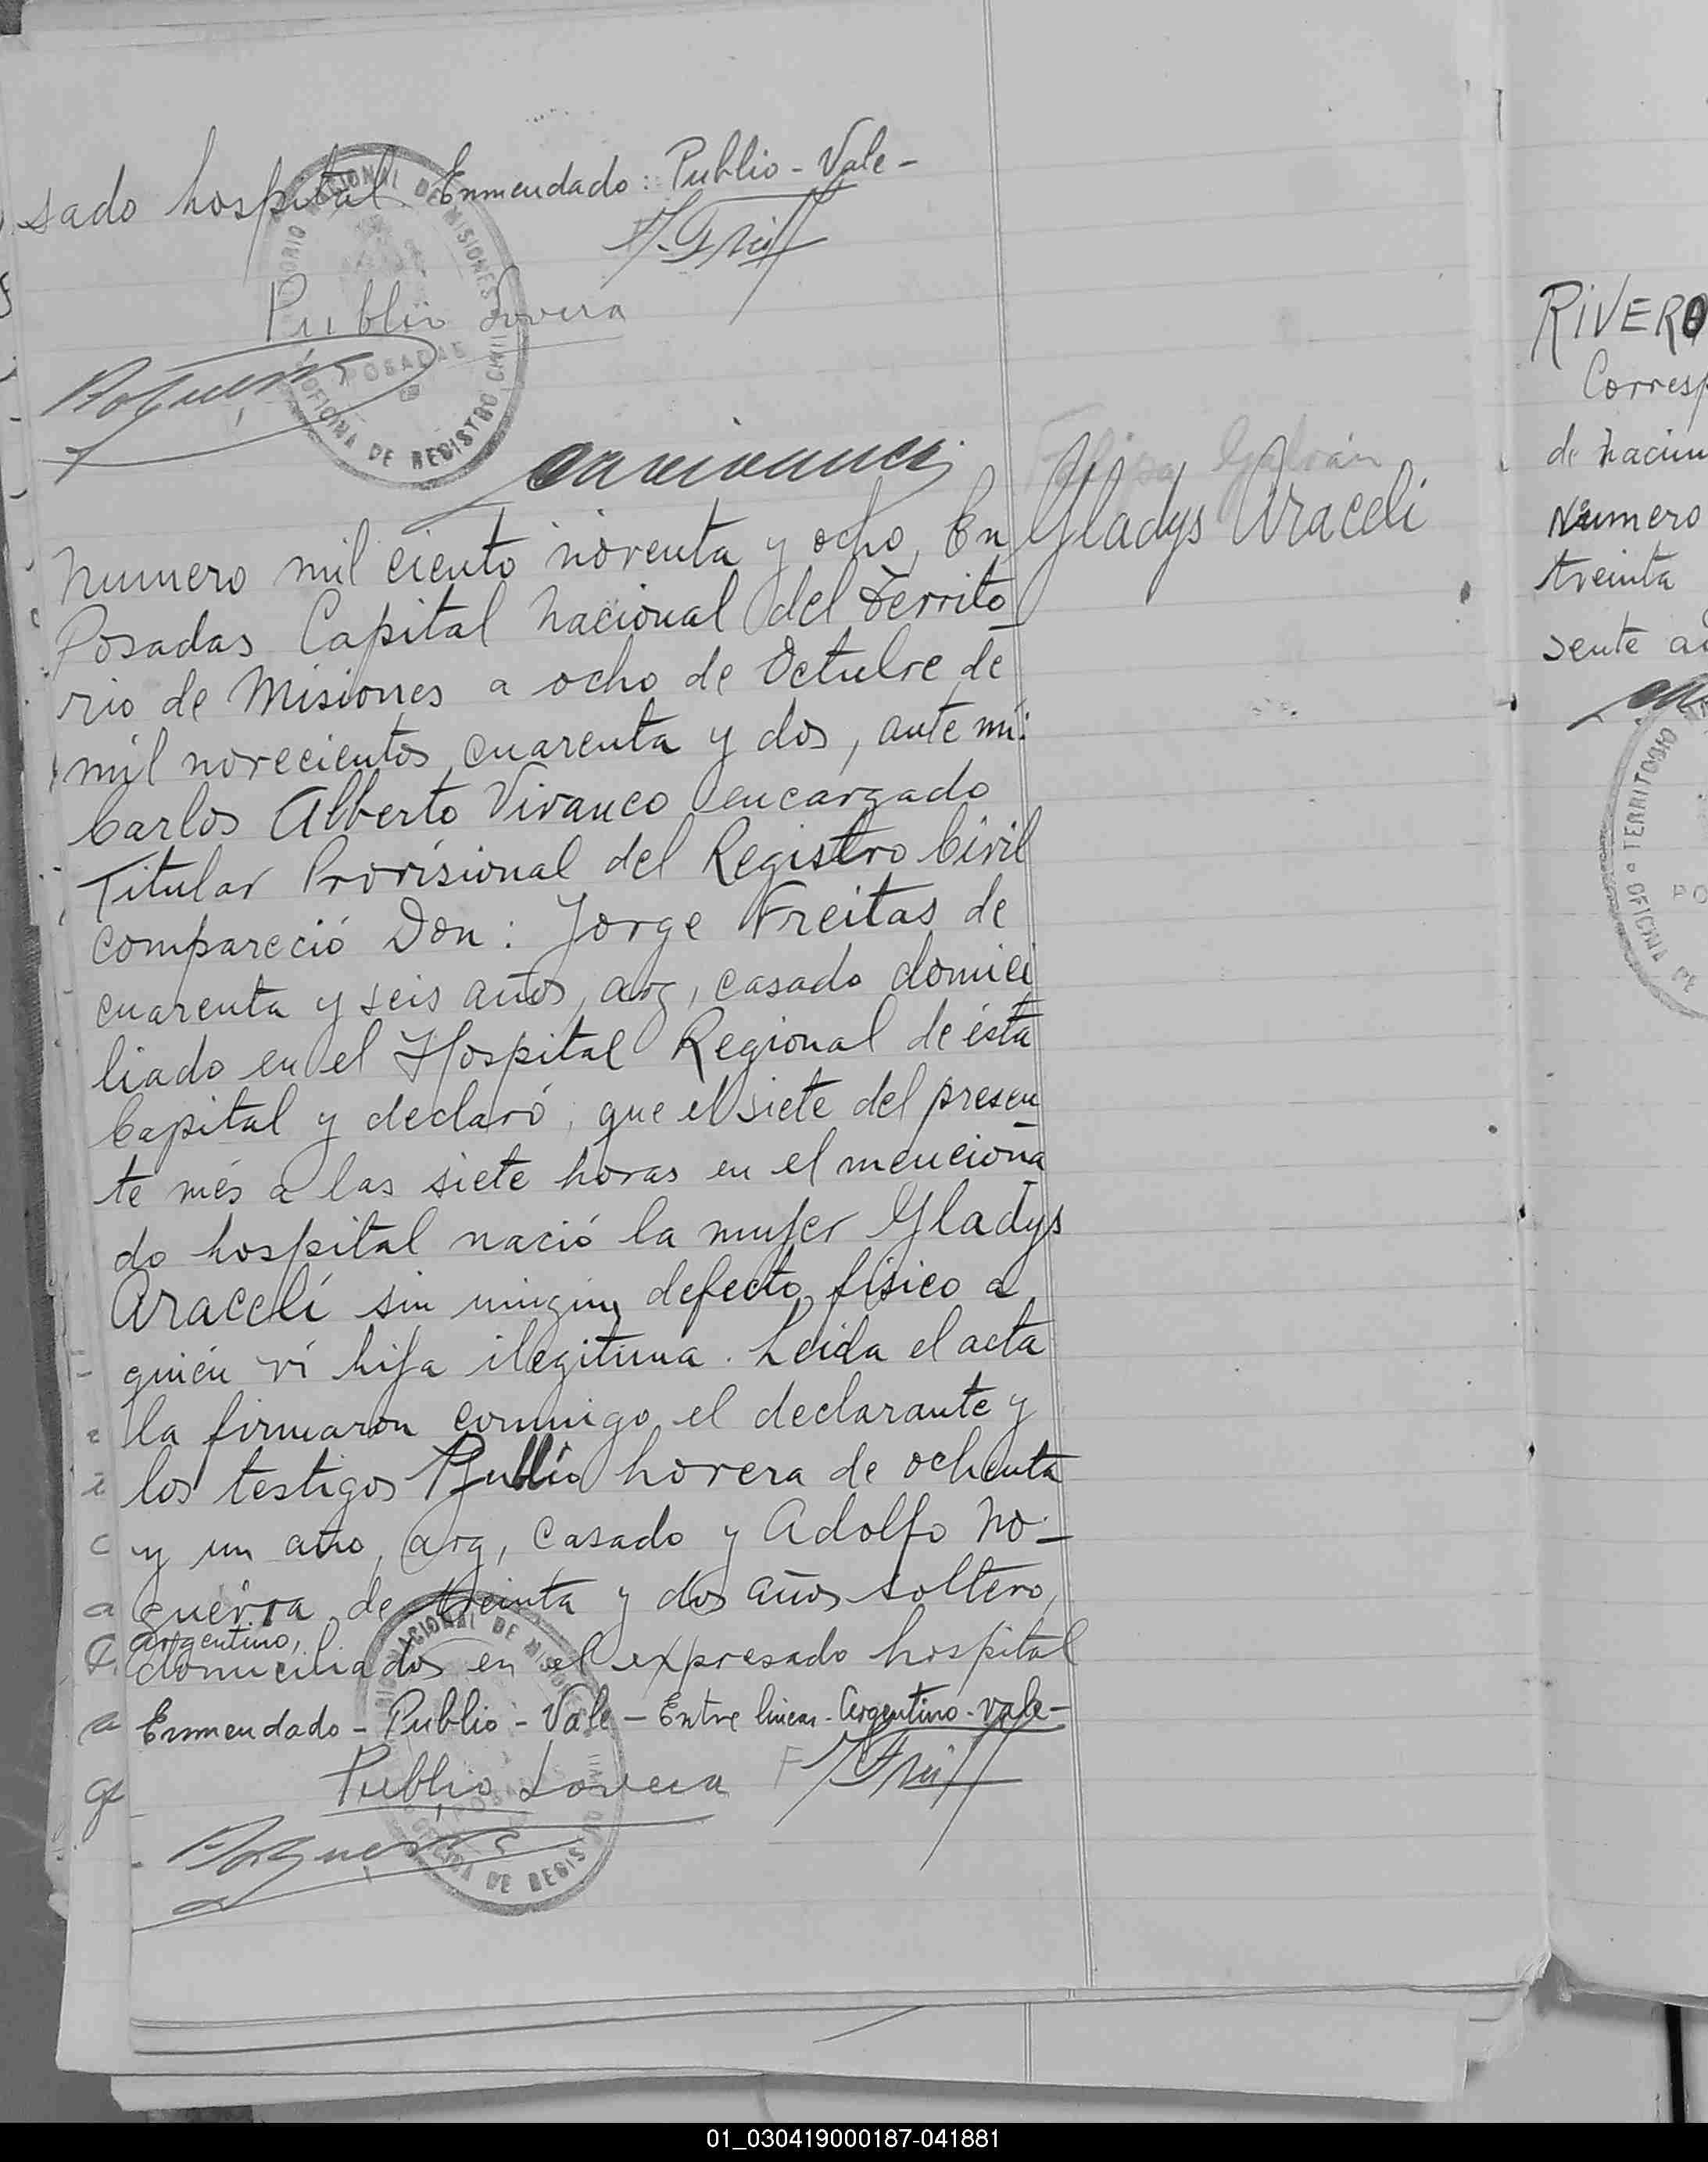 sado hospital. Enmendado: Publio - Vale -
Publio Lovera
TERRITORIO NACIONAL DE MISIONES
POSADAS
OFICINA DE REGISTRO CIVIL
Felipa Galván
Gladys Araceli
Numero mil ciento noventa y ocho, En
Posadas Capital Nacional del Territo
rio de Misiones a ocho de Octubre de
mil novecientos cuarenta y dos, ante mi:
Carlos Alberto Vivanco encargado
Titular Provisional del Registro Civil
compareció Don: Jorge Freitas de
cuarenta y seis años, arg, casado domici
liado en el Hospital Regional de ésta
Capital y declaró, que el siete del presen
te més a las siete horas en el menciona
do hospital nació la mujer Gladys
Aracelí sin ningún defecto físico a
quién ví hija ilegitima. Leida el acta
la firmaron conmigo el declarante y
los testigos Publio Lovera de ochenta
y un año, arg, casado y Adolfo No-
guerra de treinta y dos años soltero,
argentino,
domiciliados en el expresado hospital
Enmendado - Publio - Vale - Entre lineas - Argentino - vale -
Publio Lovera
NACIONAL DE MISIONES
POSADAS
OFICINA DE REGISTRO CIVIL
RIVERO
Corresp
de nacim
Numero
treinta
sente ac
TERRITORIO
OFICINA DE
PO
01_030419000187-041881